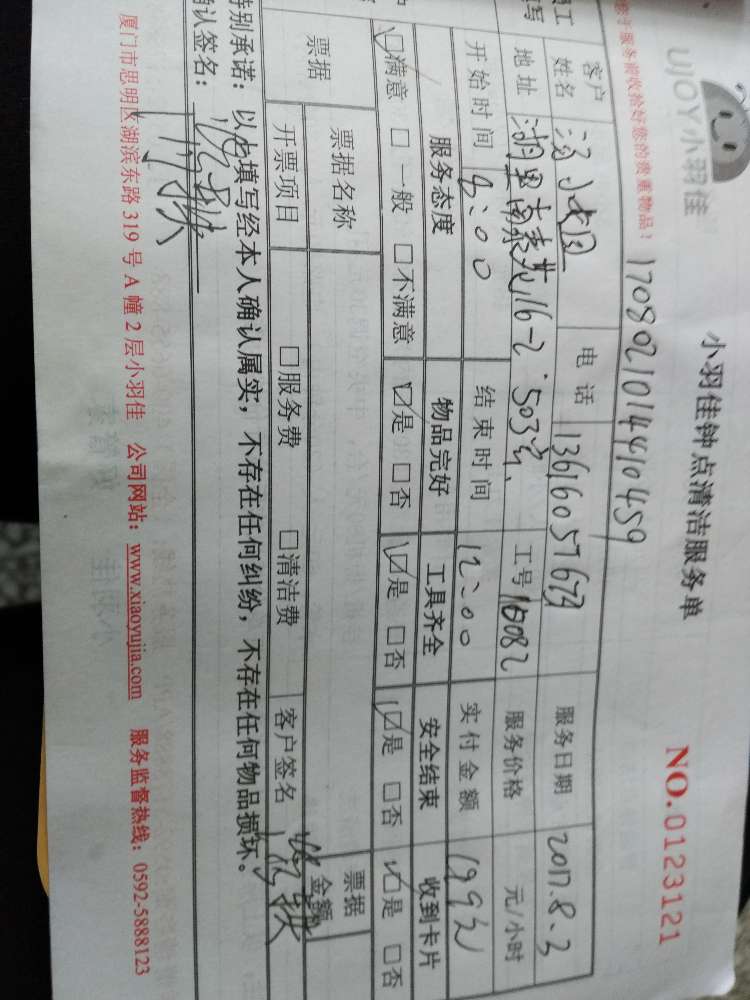 UJOY小羽佳
小羽佳钟点清洁服务单
NO.0123121
于服务前收拾好您的贵重物品！
1708021014410459
客户姓名 汤 电话 服务日期 2017.8.3
地址 湖里南泰苑16-2:503室 工号 16082 服务价格 元/小时
开始时间 9:00 结束时间 12:00 实付金额
服务态度 物品完好 工具齐全 安全结束 收到卡片
☑满意 □一般 □不满意 ☑是 □否 ☑是 □否 ☑是 □否 ☑是 □否
票据 票据名称 票据金额
开票项目 □服务费 □清洁费 客户签名
特别承诺：以上填写经本人确认属实，不存在任何纠纷，不存在任何物品损坏。
确认签名：
厦门市思明区湖滨东路 319 号 A 幢 2 层小羽佳 公司网站：www.xiaoyujia.com 服务监督热线：0592-5888123